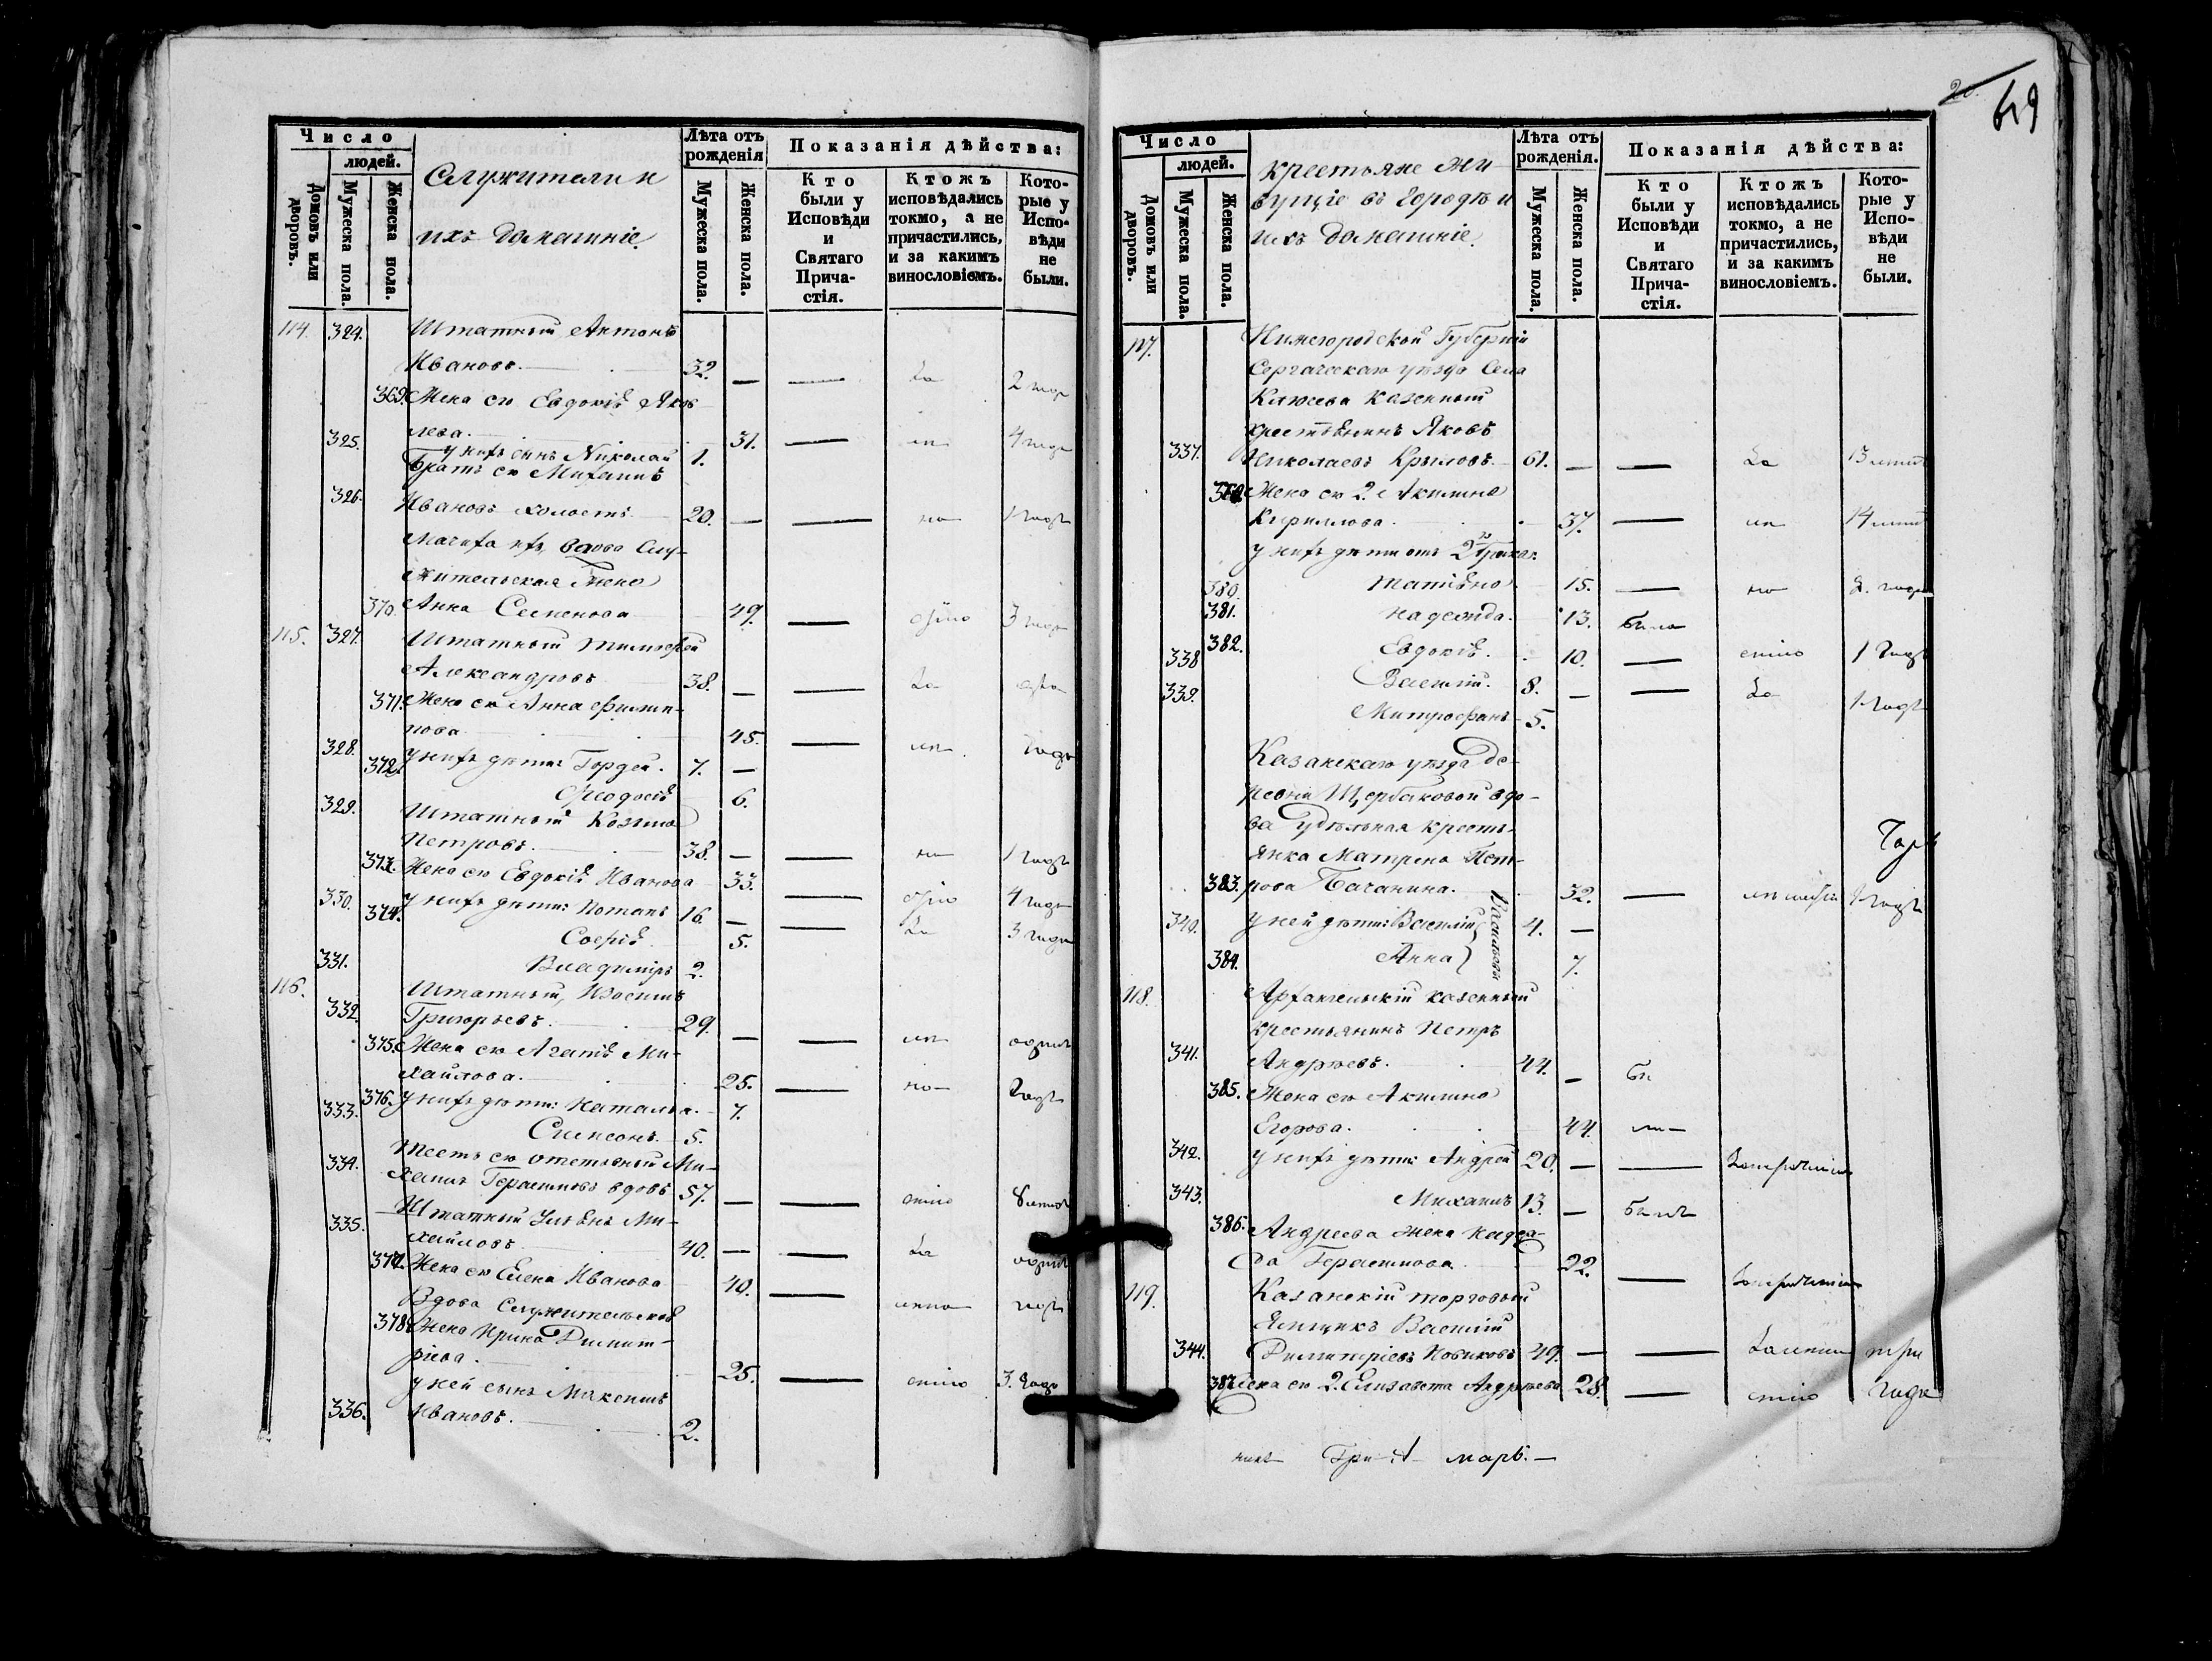 Число
людей.
Домовъ или дворовъ.
Мужеска пола.
Женска пола.
Служители и
ихъ домашніе
Лѣта отъ рожденія
Мужеска пола.
Женска пола.
Показанія дѣйства:
Кто были у Исповѣди и Святаго Прича-стія.
Ктожъ исповѣдались токмо, а не причастились, и за какимъ винословіемъ.
Кото-рые у Испо-вѣди не были.
114. 324. Штатный Антонъ
Ивановъ. 32. — — 2
369. Жена ею Евдокія Яков
лева. 31. — 4
325. у нихъ сынъ Николай 1.
Братъ ею Михаилъ
326. Ивановъ холостъ. 20. — — 1 годъ
Мачиха ихъ, вдова Слу-
жительская жена
370. Анна Семенова 49. — 3
115. 327. Штатный Тимофей
Александровъ 38. — —
371. Жена ею Анна Филип-
пова 45. — годъ
328. у нихъ дѣти: Гордей. 7. —
372. Феодосія 6.
329. Штатный Козьма
Петровъ. 38. — — 1 годъ
373. Жена ею Евдокія Иванова 33. — 4
330. у нихъ дѣти: Потапъ 16. — — 3 года
374. Софія 5.
331. Владиміръ 2.
116. Штатный, Иосифъ
332. Григорьевъ. 29. — — одинъ
375. Жена ею Агатія Ми-
хайлова. 25. — годъ
376. у нихъ дѣти: Наталья. 7.
333. Симеонъ. 5.
334. Тесть ею отставный Ми-
хаилъ Герасимовъ вдовъ 57. — —
335. Штатный Ульянъ Ми-
хайловъ 40. — — одинъ
377. Жена ею Елена Иванова 40. — годъ
Вдова Служительская
378. жена Ирина Димит-
ріева. 25. — 3. года
у ней сынъ Максимъ
336. Ивановъ. 2.
20.
649
Число
людей.
Домовъ или дворовъ.
Мужеска пола.
Женска пола.
Крестьяне жи-
вущіе въ городѣ и
ихъ домашніе.
Лѣта отъ рожденія.
Мужеска пола.
Женска пола.
Показанія дѣйства:
Кто были у Исповѣди и Святаго Прича-стія.
Ктожъ исповѣдались токмо, а не причастились, и за какимъ винословіемъ.
Кото-рые у Испо-вѣди не были.
117. Нижегородской Губерніи
Сергачскаго уѣзда Села
казенный
крестьянинъ Яковъ
337. Николаевъ Крыловъ. 61. — — 13
379. Жена ею 2. Акилина
Кириллова. 37. — 14
у нихъ дѣти отъ 2го брака:
380. Татіяна 15. — 2. года
381. Надежда. 13. была
382. Евдокія. 10. — 1 годъ
338 Василій. 8. — — 1 годъ
339. Митрофанъ 5.
Казанскаго уѣзда де-
ревни Щербаковой вдо-
ва Удѣльная кресть-
янка Матрена Пет-
383. рова Бачанина. 32. — годъ
340. у ней дѣти: Василій 4. —
384. Анна 7.
Васильевы
118. Архангельскій казенный
крестьянинъ Петръ
341. Андреевъ. 44. —
385. Жена ею Акилина
Егорова. 44.
342. у нихъ дѣти: Андрей 20. — —
343. Михаилъ 13. — былъ
386. Андреева жена Надеж-
да Герасимова. 22. —
119. Казанскій торговый
Ямщикъ Василій
344. Димитріевъ Новиковъ 49. — — три
387. Жена ею 2. Елизавета Андреева 28. — года